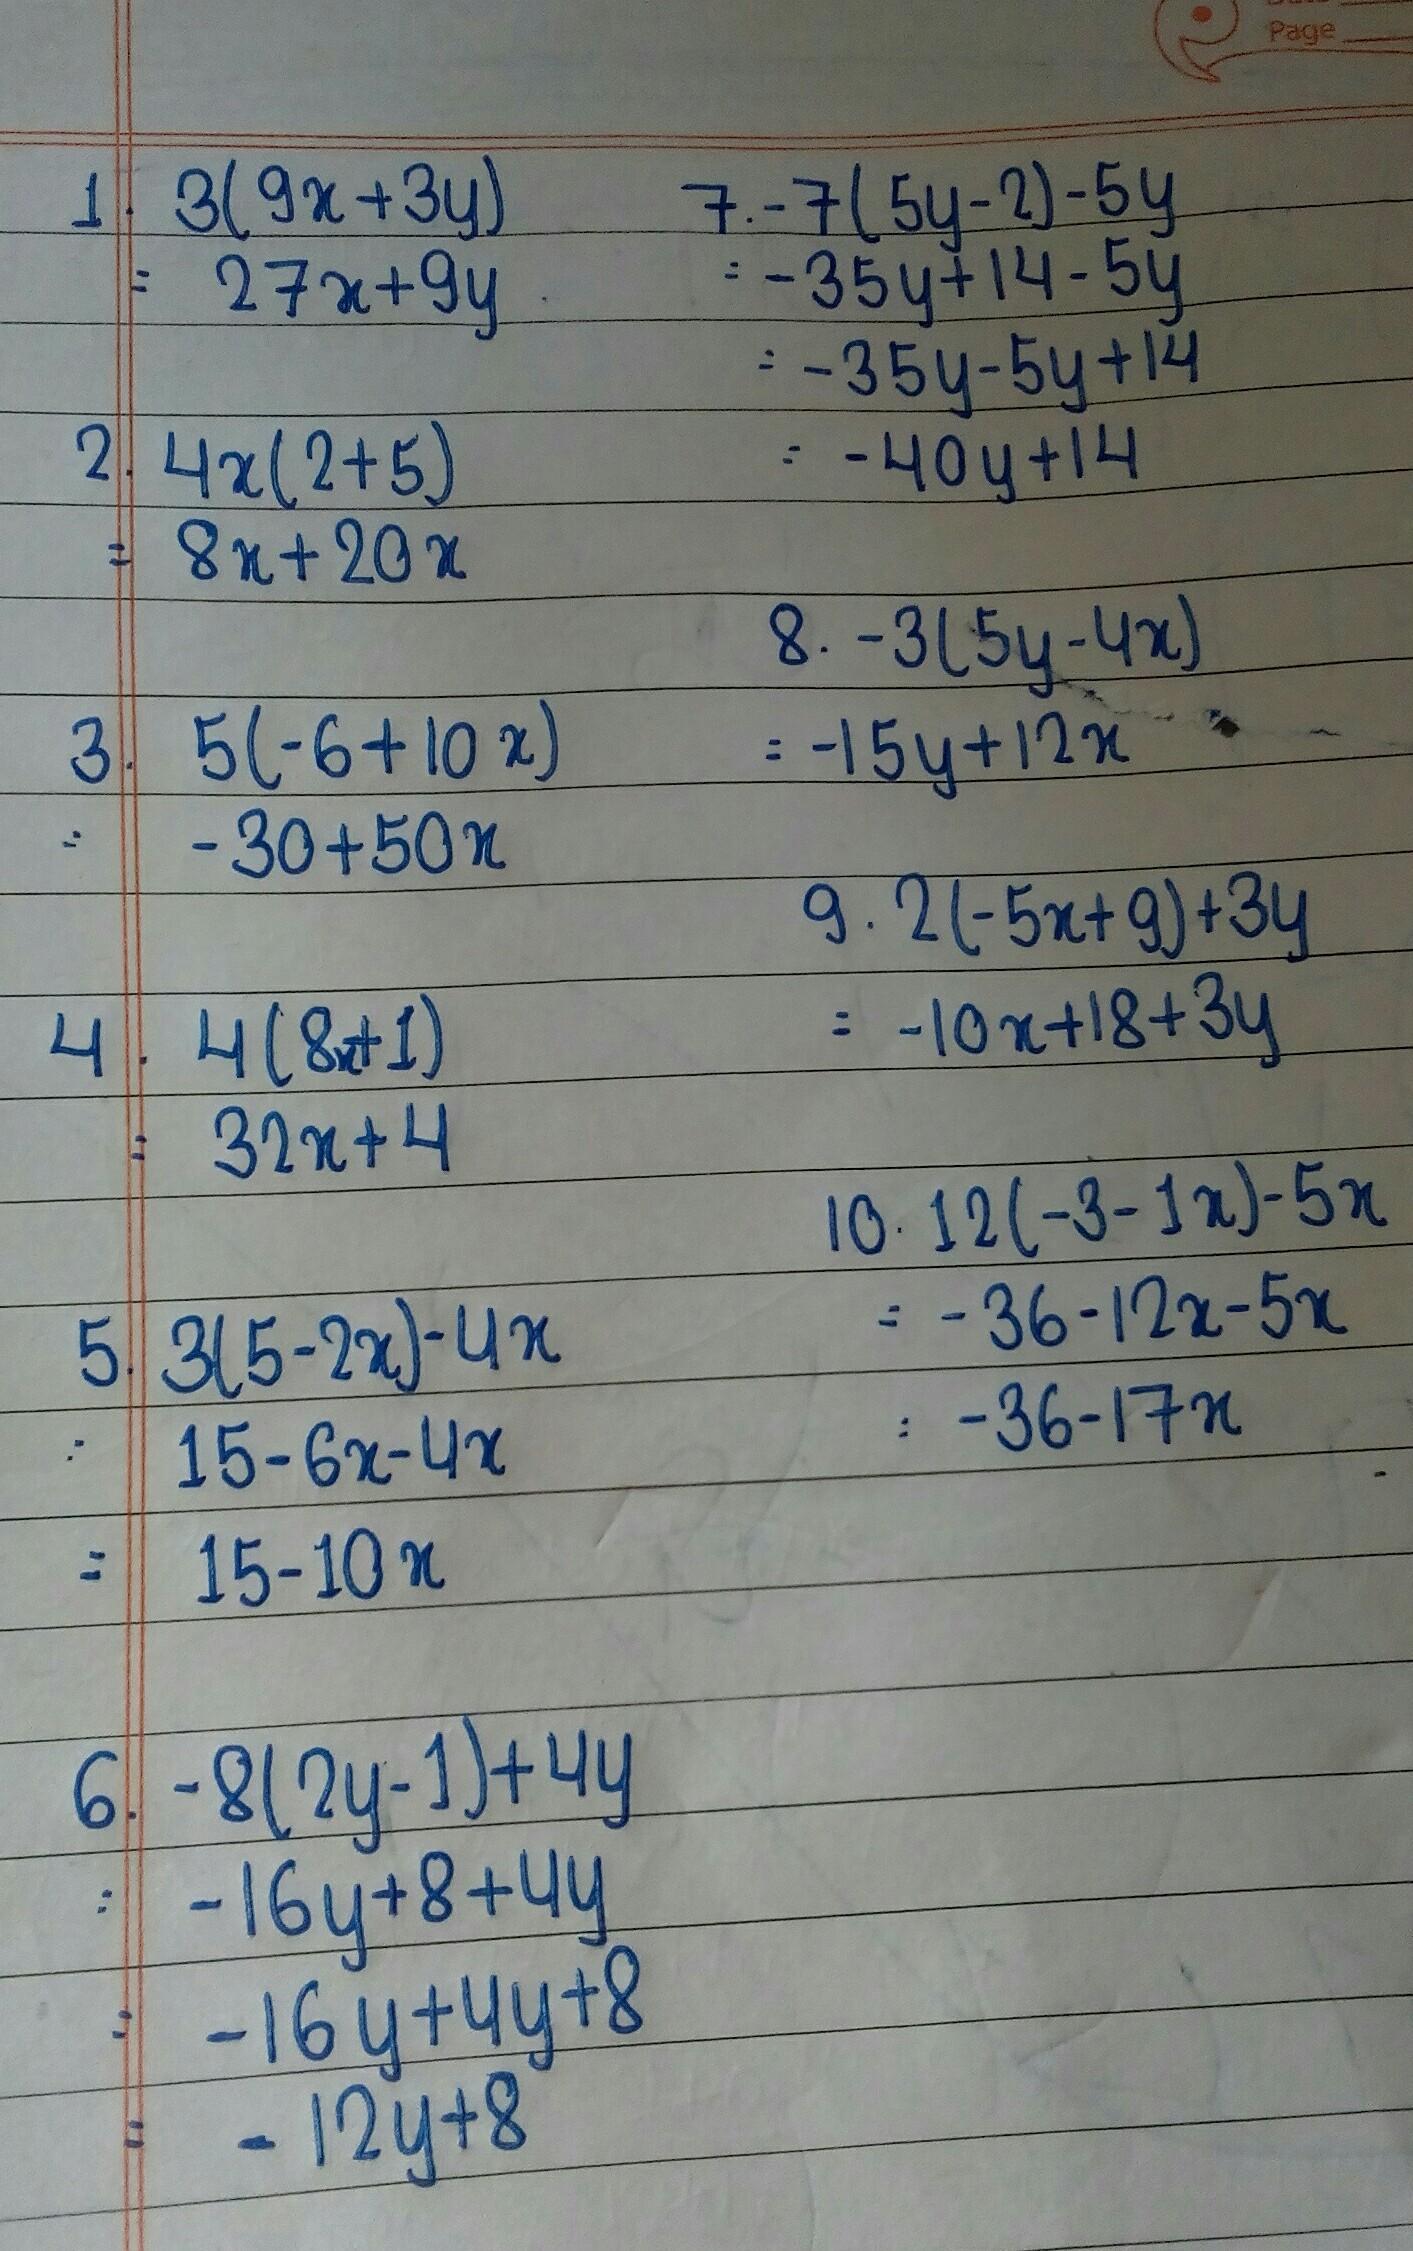 Page
1. 3(9x+3y)
= 27x+9y
2. 4x(2+5)
= 8x+20x
3. 5(-6+10x)
= -30+50x
4. 4(8x+1)
= 32x+4
5. 3(5-2x)-4x
= 15-6x-4x
= 15-10x
6. -8(2y-1)+4y
= -16y+8+4y
= -16y+4y+8
= -12y+8
7. -7(5y-2)-5y
= -35y+14-5y
= -35y-5y+14
= -40y+14
8. -3(5y-4x)
= -15y+12x
9. 2(-5x+9)+3y
= -10x+18+3y
10. 12(-3-1x)-5x
= -36-12x-5x
= -36-17x